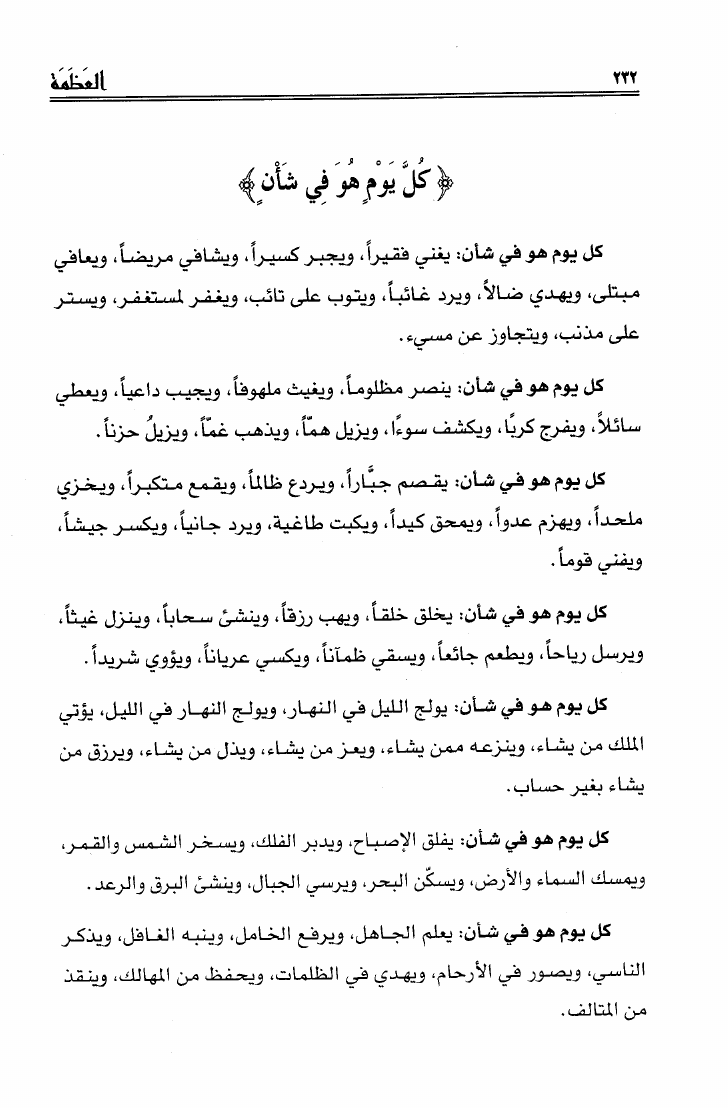 ٢٣٢ العَظَمَة
﴿ كُلَّ يَوْمٍ هُوَ فِي شَأْنٍ ﴾
كل يوم هو في شأن: يغني فقيراً، ويجبر كسيراً، ويشافي مريضاً، ويعافي
مبتلى، ويهدي ضالاً، ويرد غائباً، ويتوب على تائب، ويغفر لمستغفر، ويستر
على مذنب، ويتجاوز عن مسيء.
كل يوم هو في شأن: ينصر مظلوماً، ويغيث ملهوفاً، ويجيب داعياً، ويعطي
سائلاً، ويفرج كربًا، ويكشف سوءًا، ويزيل همّاً، ويذهب غمّاً، ويزيلُ حزناً.
كل يوم هو في شأن: يقصم جبَّاراً، ويردع ظالماً، ويقمع متكبراً، ويخزي
ملحداً، ويهزم عدواً، ويمحق كيداً، ويكبت طاغية، ويرد جانياً، ويكسر جيشاً،
ويفني قوماً.
كل يوم هو في شأن: يخلق خلقاً، ويهب رزقاً، وينشئ سحاباً، وينزل غيثاً،
ويرسل رياحاً، ويطعم جائعاً، ويسقي ظمآناً، ويكسي عرياناً، ويؤوي شريداً.
كل يوم هو في شأن: يولج الليل في النهار، ويولج النهار في الليل، يؤتي
الملك من يشاء، وينزعه ممن يشاء، ويعز من يشاء، ويذل من يشاء، ويرزق من
يشاء بغير حساب.
كل يوم هو في شأن: يفلق الإصباح، ويدبر الفلك، ويسخر الشمس والقمر،
ويمسك السماء والأرض، ويسكّن البحر، ويرسي الجبال، وينشئ البرق والرعد.
كل يوم هو في شأن: يعلم الجاهل، ويرفع الخامل، وينبه الغافل، ويذكر
الناسي، ويصور في الأرحام، ويهدي في الظلمات، ويحفظ من المهالك، وينقذ
من المتالف.